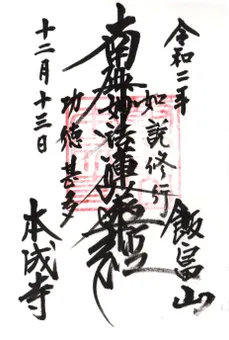 令和二年
如説修行
飯富山
南無妙法蓮華経
功徳甚多
十二月十三日
本成寺